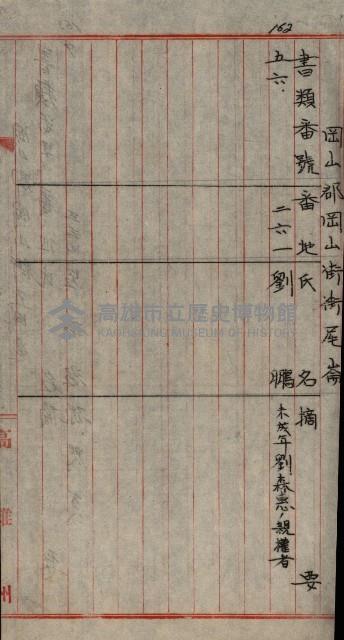 162
岡山郡岡山街街尾崙
書類番號 番地 氏名 摘要
五六. 二六一 劉鵬 未成年劉森惠ノ親權者
高雄州
高雄市立歷史博物館
KAOHSIUNG MUSEUM OF HISTORY